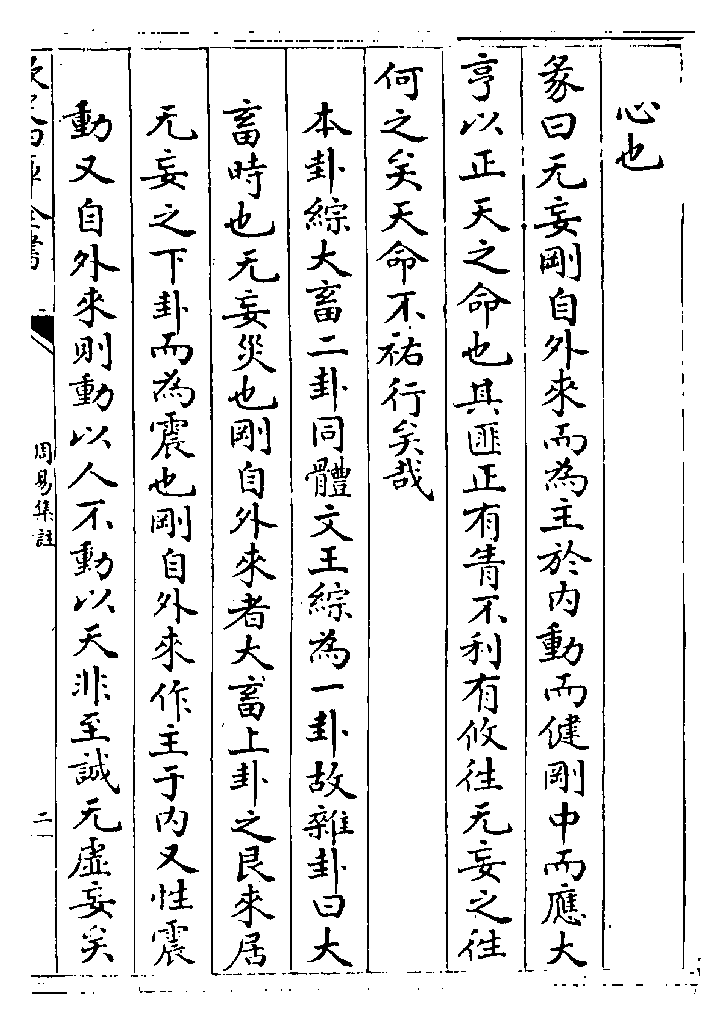 心也
彖曰无妄剛自外來而為主於内動而健剛中而應大
亨以正天之命也其匪正有眚不利有攸往无妄之往
何之矣天命不祐行矣哉
本卦綜大畜二卦同體文王綜為一卦故雜卦曰大
畜時也无妄災也剛自外來者大畜上卦之艮來居
无妄之下卦而為震也剛自外來作主于内又性震
動又自外來則動以人不動以天非至誠无虚妄矣
周易集註
二